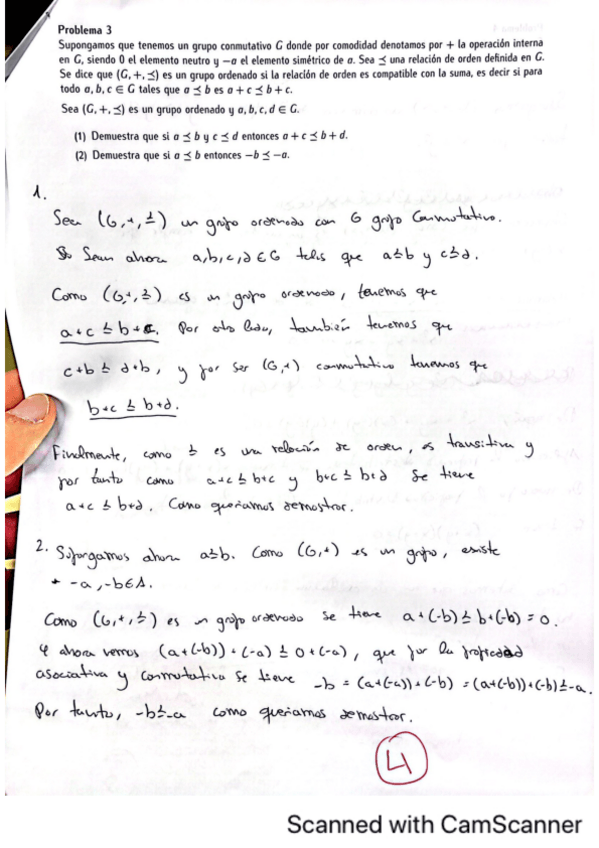 Problema 3
Supongamos que tenemos un grupo conmutativo G donde por comodidad denotamos por + la operación interna
en G, siendo 0 el elemento neutro y −a el elemento simétrico de a. Sea ⪯ una relación de orden definida en G.
Se dice que (G, +, ⪯) es un grupo ordenado si la relación de orden es compatible con la suma, es decir si para
todo a, b, c ∈ G tales que a ⪯ b es a + c ⪯ b + c.
Sea (G, +, ⪯) es un grupo ordenado y a, b, c, d ∈ G.
(1) Demuestra que si a ⪯ b y c ⪯ d entonces a + c ⪯ b + d.
(2) Demuestra que si a ⪯ b entonces −b ⪯ −a.
1.
Sea (G, +, ≤) un grupo ordenado con G grupo Conmutativo.
Sean ahora a,b,c,d ∈ G tales que a≤b y c≤d.
Como (G,+,≤) es un grupo ordenado, tenemos que
a+c ≤ b+c. Por otro lado, también tenemos que
c+b ≤ d+b, y por ser (G,+) conmutativo tenemos que
b+c ≤ b+d.
Finalmente, como ≤ es una relación de orden, es transitiva y
por tanto como a+c ≤ b+c y b+c ≤ b+d se tiene
a+c ≤ b+d. Como queríamos demostrar.
2. Supongamos ahora a≤b. Como (G,+) es un grupo, existe
-a,-b∈A.
Como (G,+,≤) es un grupo ordenado se tiene a+(-b) ≤ b+(-b) = 0.
Y ahora vemos (a+(-b))+(-a) ≤ 0+(-a), que por la propiedad
asociativa y conmutativa se tiene -b = (a+(-a))+(-b) = (a+(-b))+(-b)≤-a.
Por tanto, -b≤-a como queríamos demostrar.
4
Scanned with CamScanner